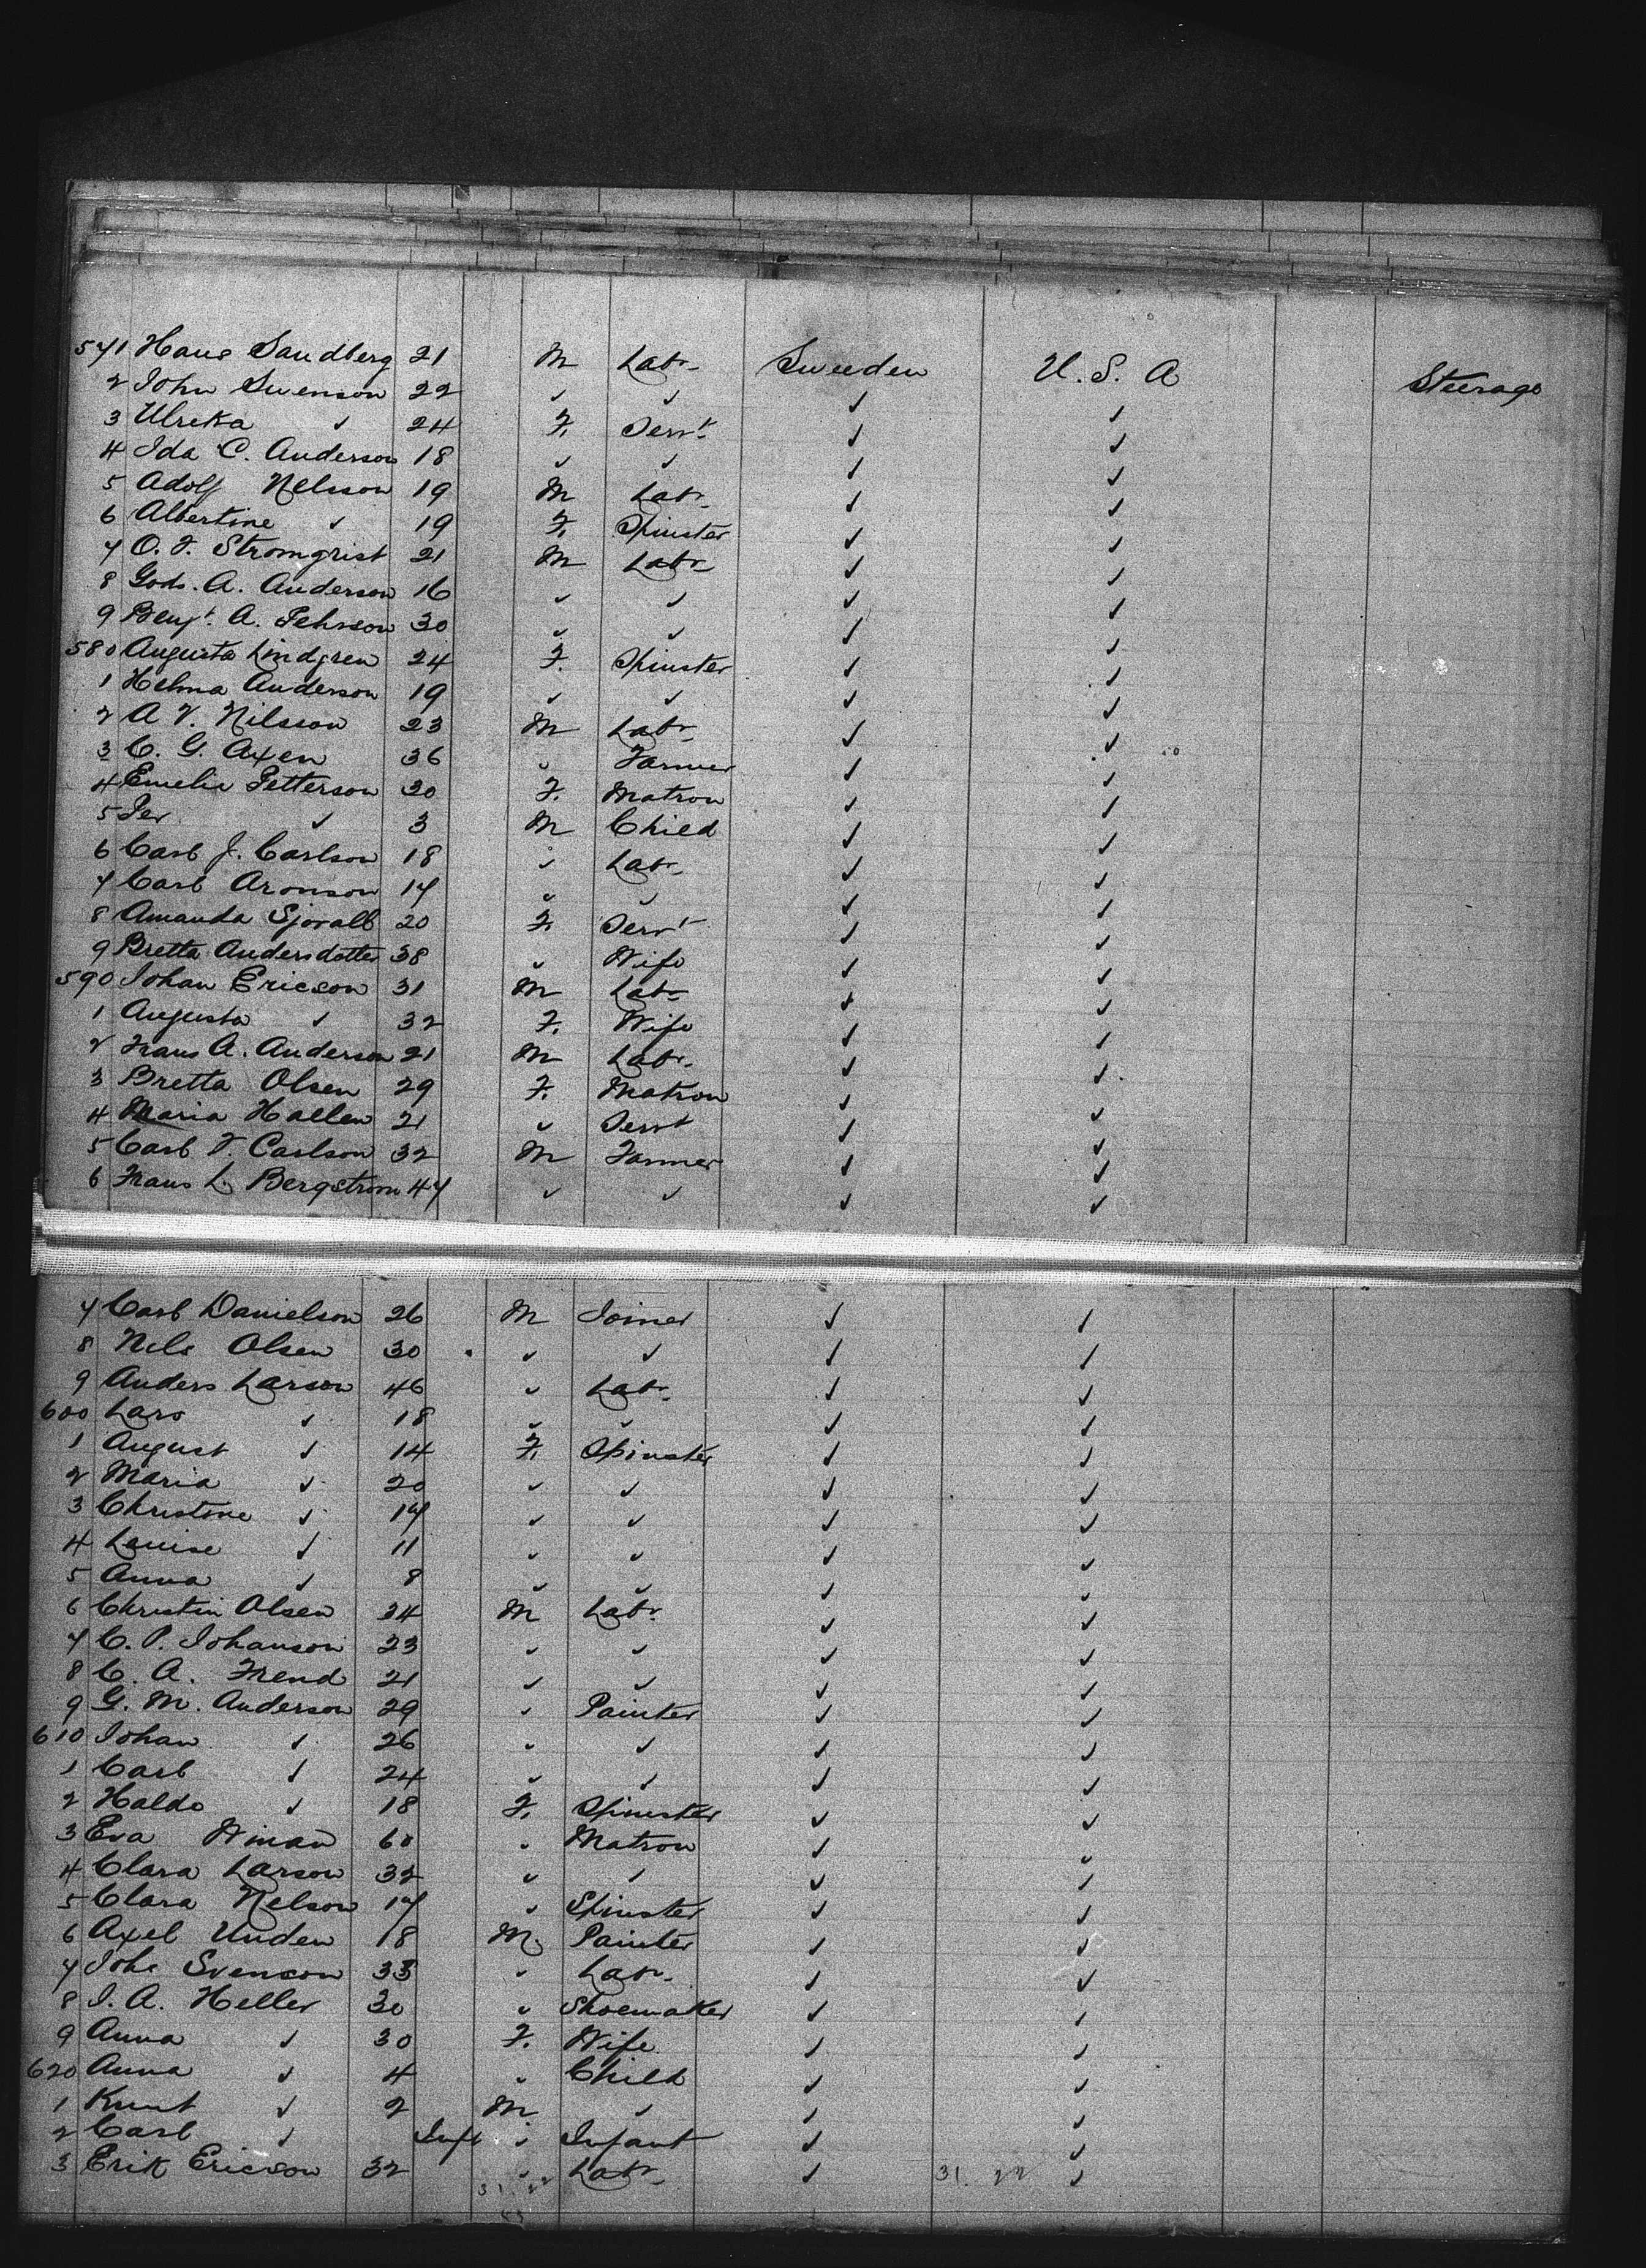 571 Hans Sandberg 21 M Labr. Sweden U.S.A Steerage
2 John Swenson 22 ✓ ✓ ✓ ✓
3 Ulreka ✓ 24 F. Servt. ✓ ✓
4 Ida C. Anderson 18 ✓ ✓ ✓ ✓
5 Adolf Nelsson 19 M Labr. ✓ ✓
6 Albertine ✓ 19 F. Spinster ✓ ✓
7 O. F. Stromqrist 21 M Labr. ✓ ✓
8 Gods. A. Anderson 16 ✓ ✓ ✓ ✓
9 Bengt. A. Pehrson 30 ✓ ✓ ✓ ✓
580 Augusta Lindgren 24 F. Spinster ✓ ✓
1 Helma Anderson 19 ✓ ✓ ✓ ✓
2 A V. Nilsson 23 M Labr. ✓ ✓
3 C. G. Axen 36 ✓ Farmer ✓ ✓
4 Emelie Petterson 30 F. Matron ✓ ✓
5 Per ✓ 3 M Child ✓ ✓
6 Carl J. Carlson 18 ✓ Labr. ✓ ✓
7 Carl Aronson 17 ✓ ✓ ✓ ✓
8 Amanda Sjovall 20 F. Servt ✓ ✓
9 Bretta Andersdotter 38 ✓ Wife ✓ ✓
590 Johan Ericson 31 M Labr. ✓ ✓
1 Augusta ✓ 32 F. Wife ✓ ✓
2 Frans A. Anderson 21 M Labr. ✓ ✓
3 Bretta Olsen 29 F. Matron ✓ ✓
4 Maria Hallen 21 ✓ Servt ✓ ✓
5 Carl F. Carlson 32 M Farmer ✓ ✓
6 Frans L. Bergstrom 47 ✓ ✓ ✓ ✓
7 Carl Danielson 26 M Joiner ✓ ✓
8 Nils Olsen 30 ✓ ✓ ✓ ✓
9 Anders Larson 46 ✓ Labr. ✓ ✓
600 Lars ✓ 18 ✓ ✓ ✓ ✓
1 August ✓ 14 F. Spinster ✓ ✓
2 Maria ✓ 20 ✓ ✓ ✓ ✓
3 Christine ✓ 17 ✓ ✓ ✓ ✓
4 Louise ✓ 11 ✓ ✓ ✓ ✓
5 Anna ✓ 8 ✓ ✓ ✓ ✓
6 Christin Olsen 34 M Labr. ✓ ✓
7 C. P. Johanson 23 ✓ ✓ ✓ ✓
8 C. A. Frend 21 ✓ ✓ ✓ ✓
9 G. M. Anderson 29 ✓ Painter ✓ ✓
610 Johan ✓ 26 ✓ ✓ ✓ ✓
1 Carl ✓ 24 ✓ ✓ ✓ ✓
2 Haldo ✓ 18 F. Spinster ✓ ✓
3 Eva Winan 60 ✓ Matron ✓ ✓
4 Clara Larson 32 ✓ ✓ ✓ ✓
5 Clara Nelson 17 ✓ Spinster ✓ ✓
6 Axel Unden 18 M. Painter ✓ ✓
7 Johs Svenson 33 ✓ Labr. ✓ ✓
8 J. A. Heller 30 ✓ Shoemaker ✓ ✓
9 Anna ✓ 30 F. Wife ✓ ✓
620 Anna ✓ 4 ✓ Child ✓ ✓
1 Knut ✓ 2 M ✓ ✓ ✓
2 Carl ✓ Inft ✓ Infant ✓ ✓
3 Erik Ericson 32 ✓ Labr. ✓ 31. 22 ✓